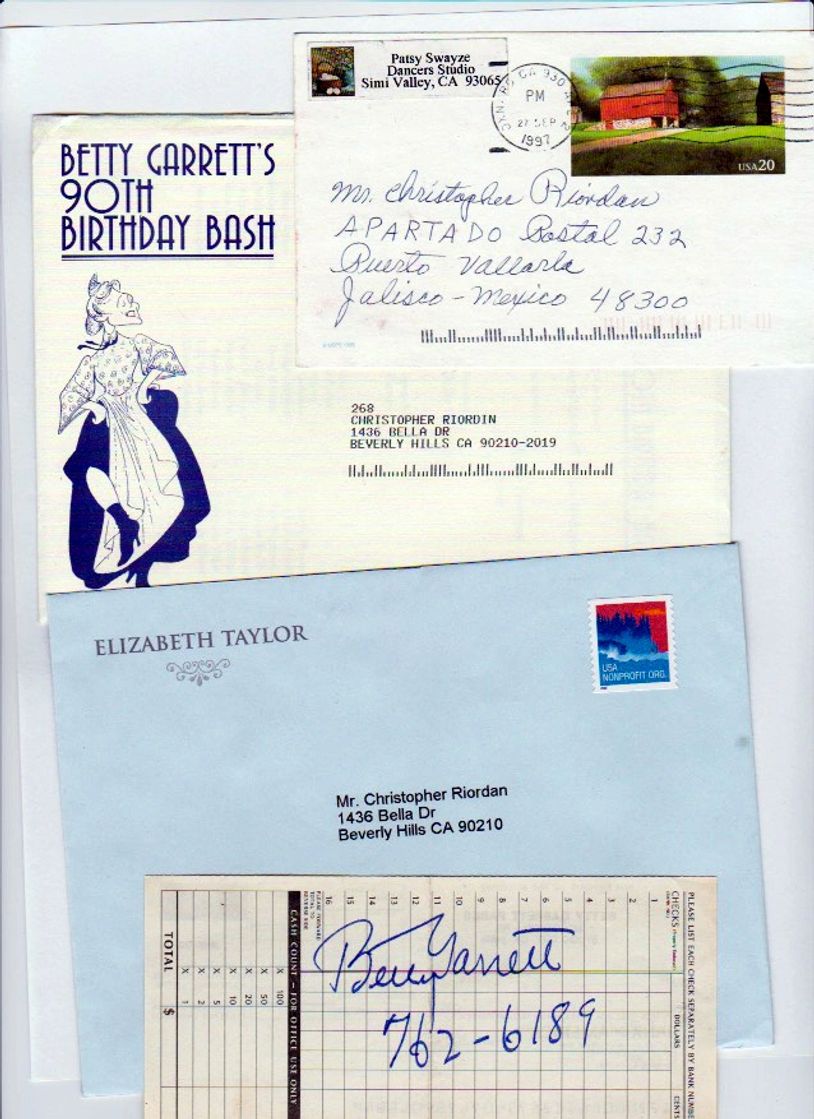 Patsy Swayze
Dancers Studio
Simi Valley, CA 93065
CA 930
PM
27 SEP
1997
USA20
Mr. Christopher Riordan
APARTADO Postal 232
Puerto Vallarta
Jalisco - Mexico 48300
BETTY GARRETT'S
90TH
BIRTHDAY BASH
268
CHRISTOPHER RIORDIN
1436 BELLA DR
BEVERLY HILLS CA 90210-2019
ELIZABETH TAYLOR
USA
NONPROFIT ORG.
Mr. Christopher Riordan
1436 Bella Dr
Beverly Hills CA 90210
PLEASE LIST EACH CHECK SEPARATELY BY BANK NUMBE
CHECKS
DOLLARS
CENTS
1
2
3
4
5
6
7
8
9
10
11
12
13
14
15
16
PLEASE FORWARD
TOTAL TO
REVERSE SIDE
CASH COUNT — FOR OFFICE USE ONLY
X 100
X 50
X 20
X 10
X 5
X 2
X 1
TOTAL $
Betty Garrett
762-6189